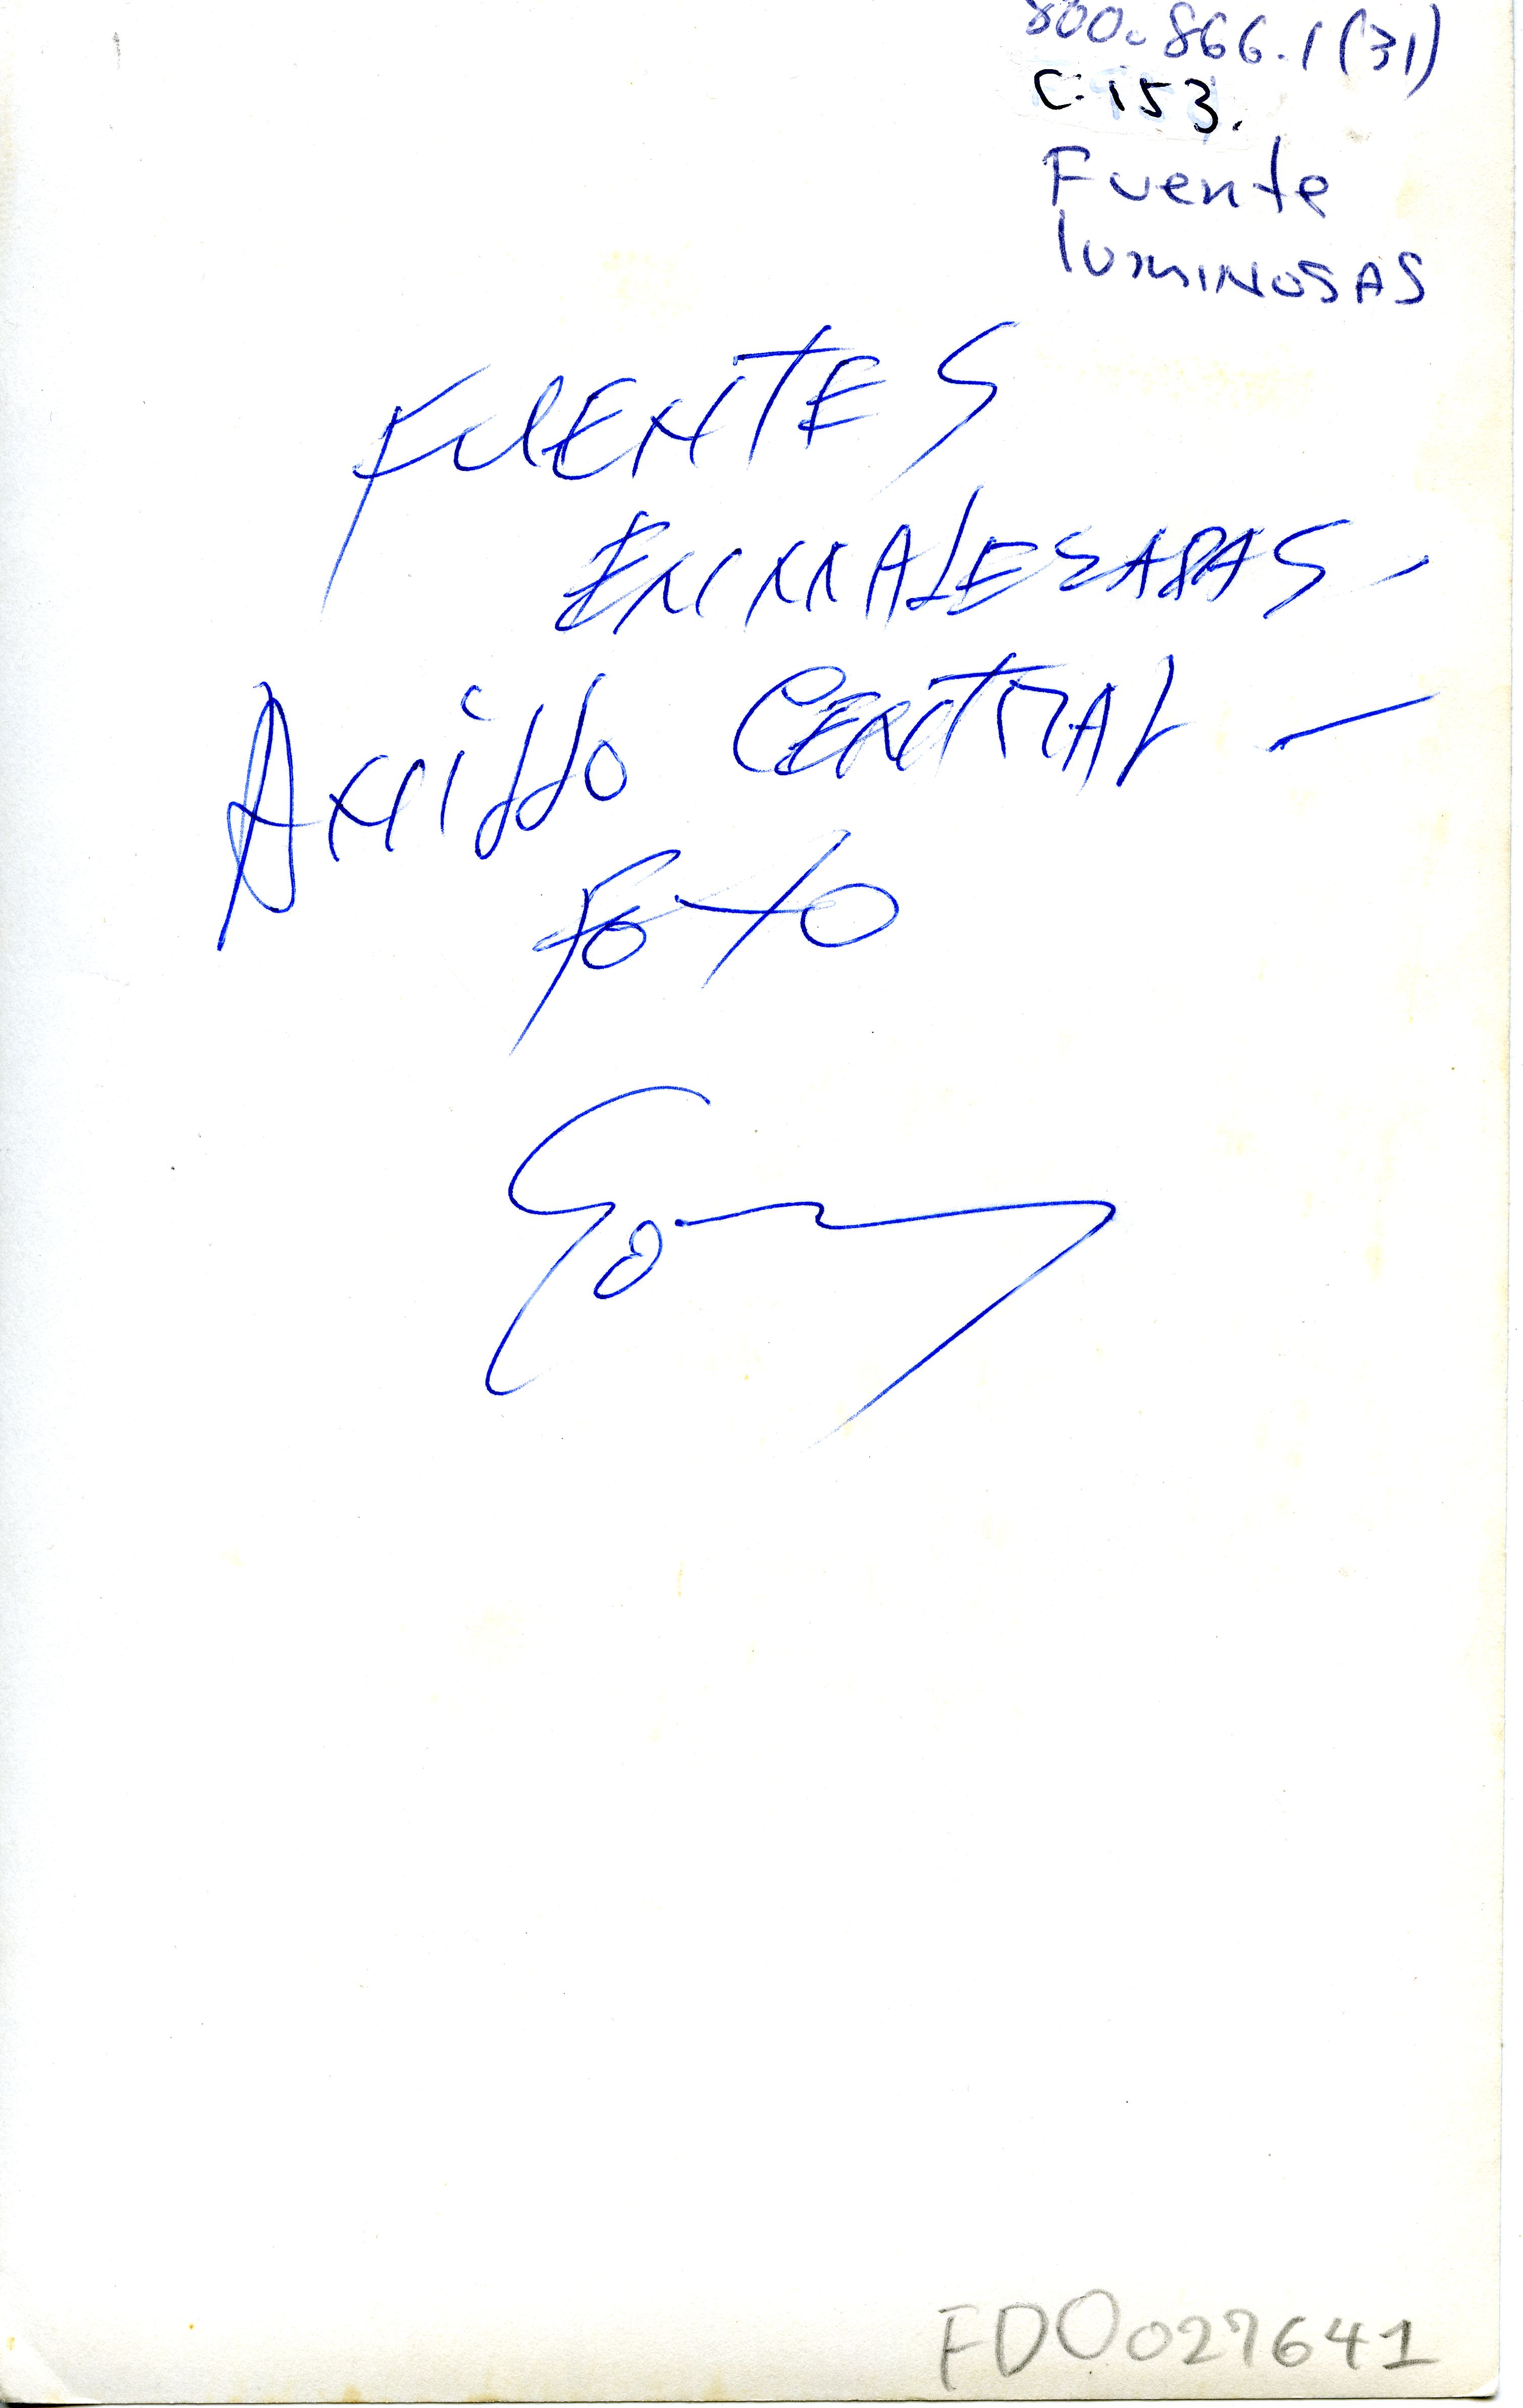 800.866.1(31)
C.153.
Fuente
luminosas
FUENTES
ENMALEZADAS -
Anillo CENTRAL -
Foto
FDO027641